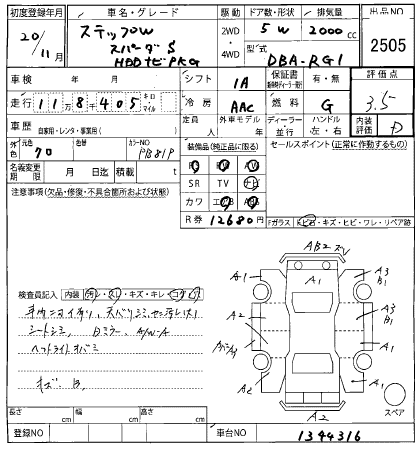 初度登録年月
車名・グレード
駆動
ドア数・形状
排気量
出品NO
20/11月
ステップW
スパーダS
HDDナビPKG
2WD
4WD
5 W
2000 cc
型式
DBA-RG1
2505
車検
年 月
シフト
IA
保証書
有・無
評価点
走行
118405
キロ
マイル
冷房
AAC
燃料
G
3.5
車歴
自家用・レンタ・事業用( )
定員
人
外車モデル
年
ディーラー
並行
ハンドル
左・右
内装
評価
D
外色
元色
70
色替
カラーNO
PB81P
装備品(純正品に限る)
セールスポイント(正常に作動するもの)
名義変更
期限
月 日迄
積載
t
SR TV ナビ
カワ
R券 12680円
注意事項(欠品・修復・不具合箇所および状態)
Fガラス
トビ石・キズ・ヒビ・ワレ・リペア跡
検査員記入
内装
汚レ・スレ・キズ・キレ・コゲ・ビス
シートシミ Bミラー A/W-A
ヘットライトオバミ
キズ B
AB2 スレ
A1
A1
A3
B1
A2
A3
B1
A1
A2
A1
A2
スペア
長さ
cm
幅
cm
高さ
cm
登録NO
車台NO
1344316